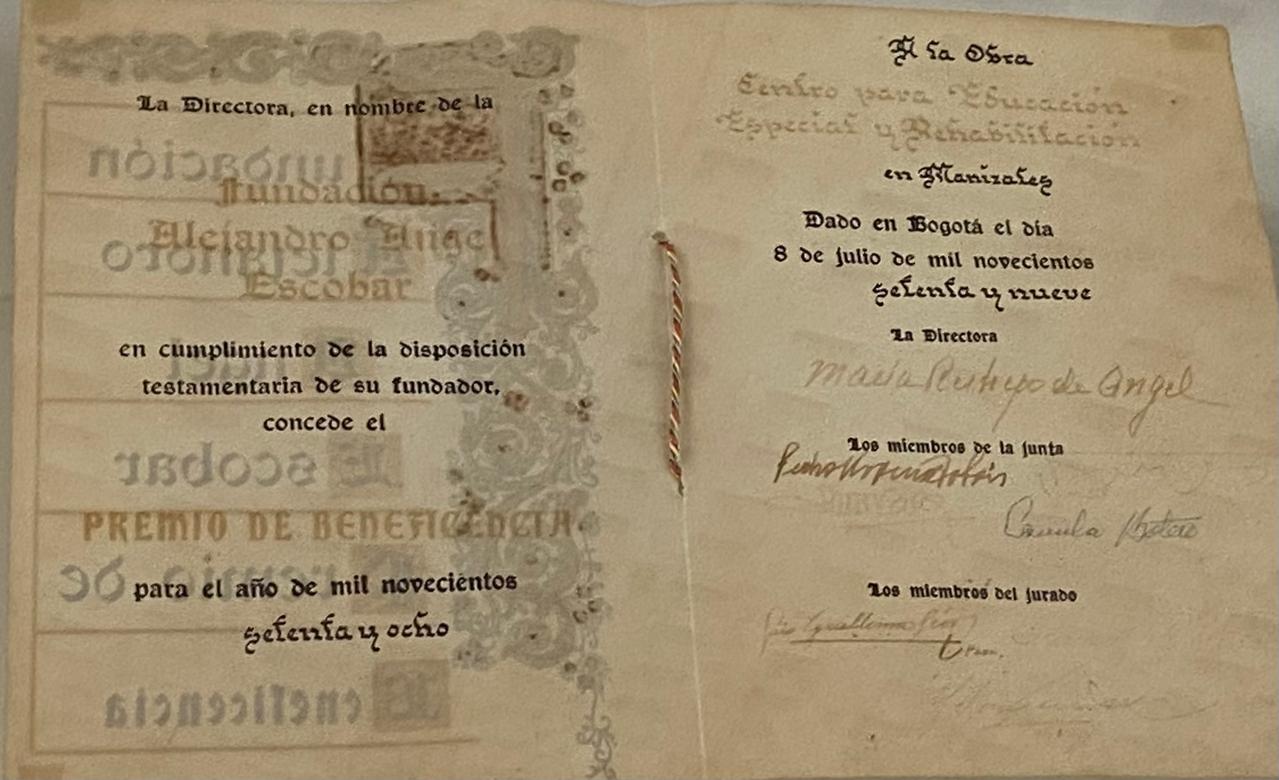 La Directora, en nombre de la
Fundación
Alejandro Angel
Escobar
en cumplimiento de la disposición
testamentaria de su fundador,
concede el
PREMIO DE BENEFICENCIA
para el año de mil novecientos
setenta y ocho
A la Obra
Centro para Educación
Especial y Rehabilitación
en Manizales
Dado en Bogotá el día
8 de julio de mil novecientos
setenta y nueve
La Directora
María Restrepo de Angel
Los miembros de la junta
Los miembros del jurado